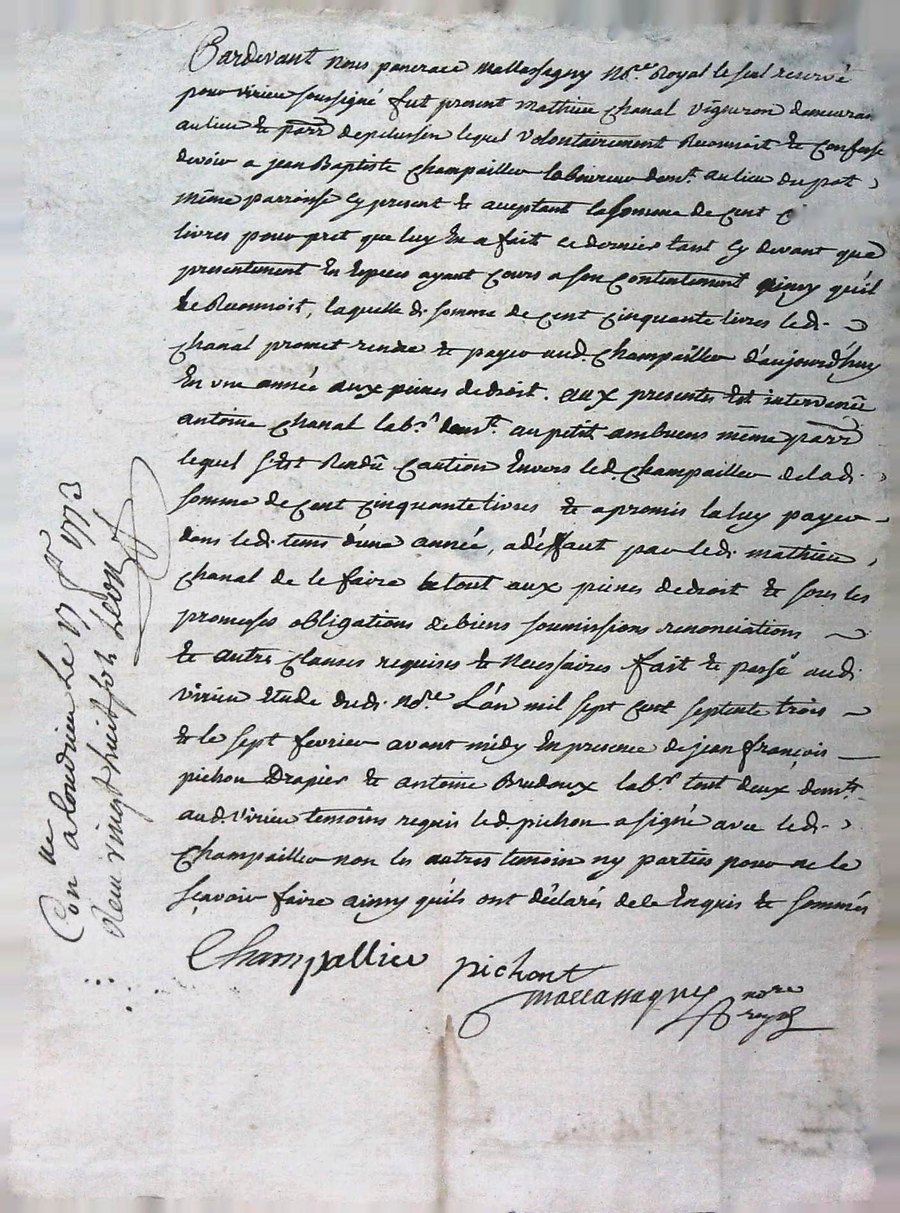 Pardevant nous pancrace mallassagny No.re Royal le seul reservé
pour virieu soussigné fut present mathieu chanal vigneron demeuran
au lieu & parr depelussin lequel volontairement Reconnoit & confesse
devoir a jean Baptiste champailler laboureur demt. au lieu du pat
même parroisse cy present & acceptant la somme de cent
livres pour pret que luy En a fait ce dernier tant cy devant que
presentement En Especes ayant cours a son contentement ainsy qu'il
le Reconnoit, laquelle d. somme de cent cinquante livres led.
chanal promet rendre & payer aud. champailler d'aujourd'huy
En une année aux peines de droit. aux presentes Est intervenu
antoine chanal lab.r demt. au petit ambuens même parr
lequel s'est Rendû caution Envers led. champailler de lad.
somme de cent cinquante livres & a promis la luy payer
dans led. tems d'une année, a déffaut par led. mathieu
chanal de le faire le tout aux peines de droit & sous les
promesses obligations de biens soumissions renonciations
& autres clauses requises & Necessaires fait & passé aud.
virieu étude dud. no.re L'an mil sept cent septente trois
& le sept fevrier avant midy En presence de jean françois
pichon Drapier & antoine lab.r tout deux demts.
aud. virieu temoins requis led. pichon a signé avec led.
champailler non les autres temoin ny parties pour ne le
sçavoir faire ainsy qu'ils ont déclarés de ce Enquis & sommés
Champallier pichont
mallassagny nore
royal
Con.lé a Condrieu Le 17 fr 1773
Reçu vingt huit sols Leon